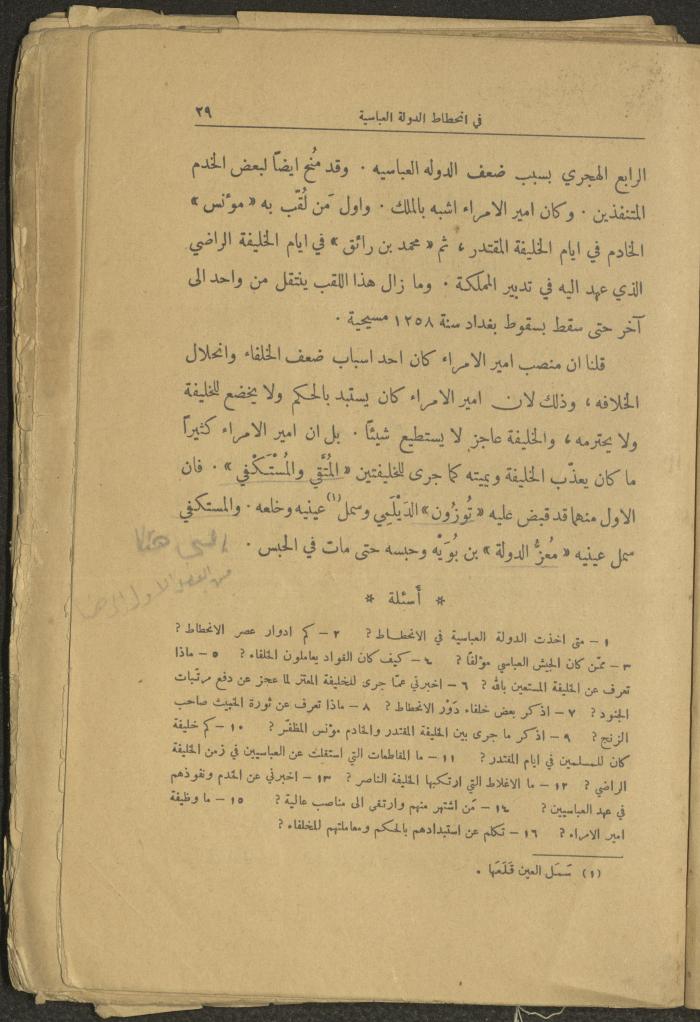 في انحطاط الدولة العباسية ٢٩
الرابع الهجري بسبب ضعف الدوله العباسيه . وقد مُنح ايضاً لبعض الخدم
المتنفذين . وكان امير الامراء اشبه بالملك . واول مَن لُقّب به « موٴنس »
الخادم في ايام الخليفة المقتدر ، ثم « محمد بن رائق » في ايام الخليفة الراضي
الذي عهد اليه في تدبير المملكة . وما زال هذا اللقب ينتقل من واحد الى
آخر حتى سقط بسقوط بغداد سنة ١٢٥٨ مسيحية .
قلنا ان منصب امير الامراء كان احد اسباب ضعف الخلفاء وانحلال
الخلافه ، وذلك لان امير الامراء كان يستبد بالحكم ولا يخضع للخليفة
ولا يحترمه ، والخليفة عاجز لا يستطيع شيئاً . بل ان امير الامراء كثيراً
ما كان يعذّب الخليفة ويميته كما جرى للخليفتين « المُتَّقي والمُسْتَكْفي » . فان
الاول منهما قد قبض عليه « تُوزُون » الدَيْلَمي وسمل (١) عينيه وخلعه . والمستكفي
سمل عينيه « مُعزُّ الدولة » بن بُوَيْه وحبسه حتى مات في الحبس .
* أَسئلة *
١ – متى اخذت الدولة العباسية في الانحطاط ? ٢ – كم ادوار عصر الانحطاط ?
٣ – ممّن كان الجيش العباسي مؤلفاً ? ٤ – كيف كان القواد يعاملون الخلفاء ? ٥ – ماذا
تعرف عن الخليفة المستعين بالله ? ٦ – اخبرني عمّا جرى للخليفة المعتز لما عجز عن دفع مرتّبات
الجنود ? ٧ – اذكر بعض خلفاء دَوْر الانحطاط ? ٨ – ماذا تعرف عن ثورة الخبيث صاحب
الزنج ? ٩ – اذكر ما جرى بين الخليفة المقتدر والخادم مؤنس المظفّر ? ١٠ – كم خليفة
كان للمسلمين في ايام المقتدر ? ١١ – ما المقاطعات التي استقلت عن العباسيين في زمن الخليفة
الراضي ? ١٢ – ما الاغلاط التي ارتكبها الخليفة الناصر ? ١٣ – اخبرني عن الخدم ونفوذهم
في عهد العباسيين ? ١٤ – مَن اشتهر منهم وارتقى الى مناصب عالية ? ١٥ – ما وظيفة
امير الامراء ? ١٦ – تكلم عن استبدادهم بالحكم ومعاملتهم للخلفاء ?
(١) سَمَل العين قَلَعَها .